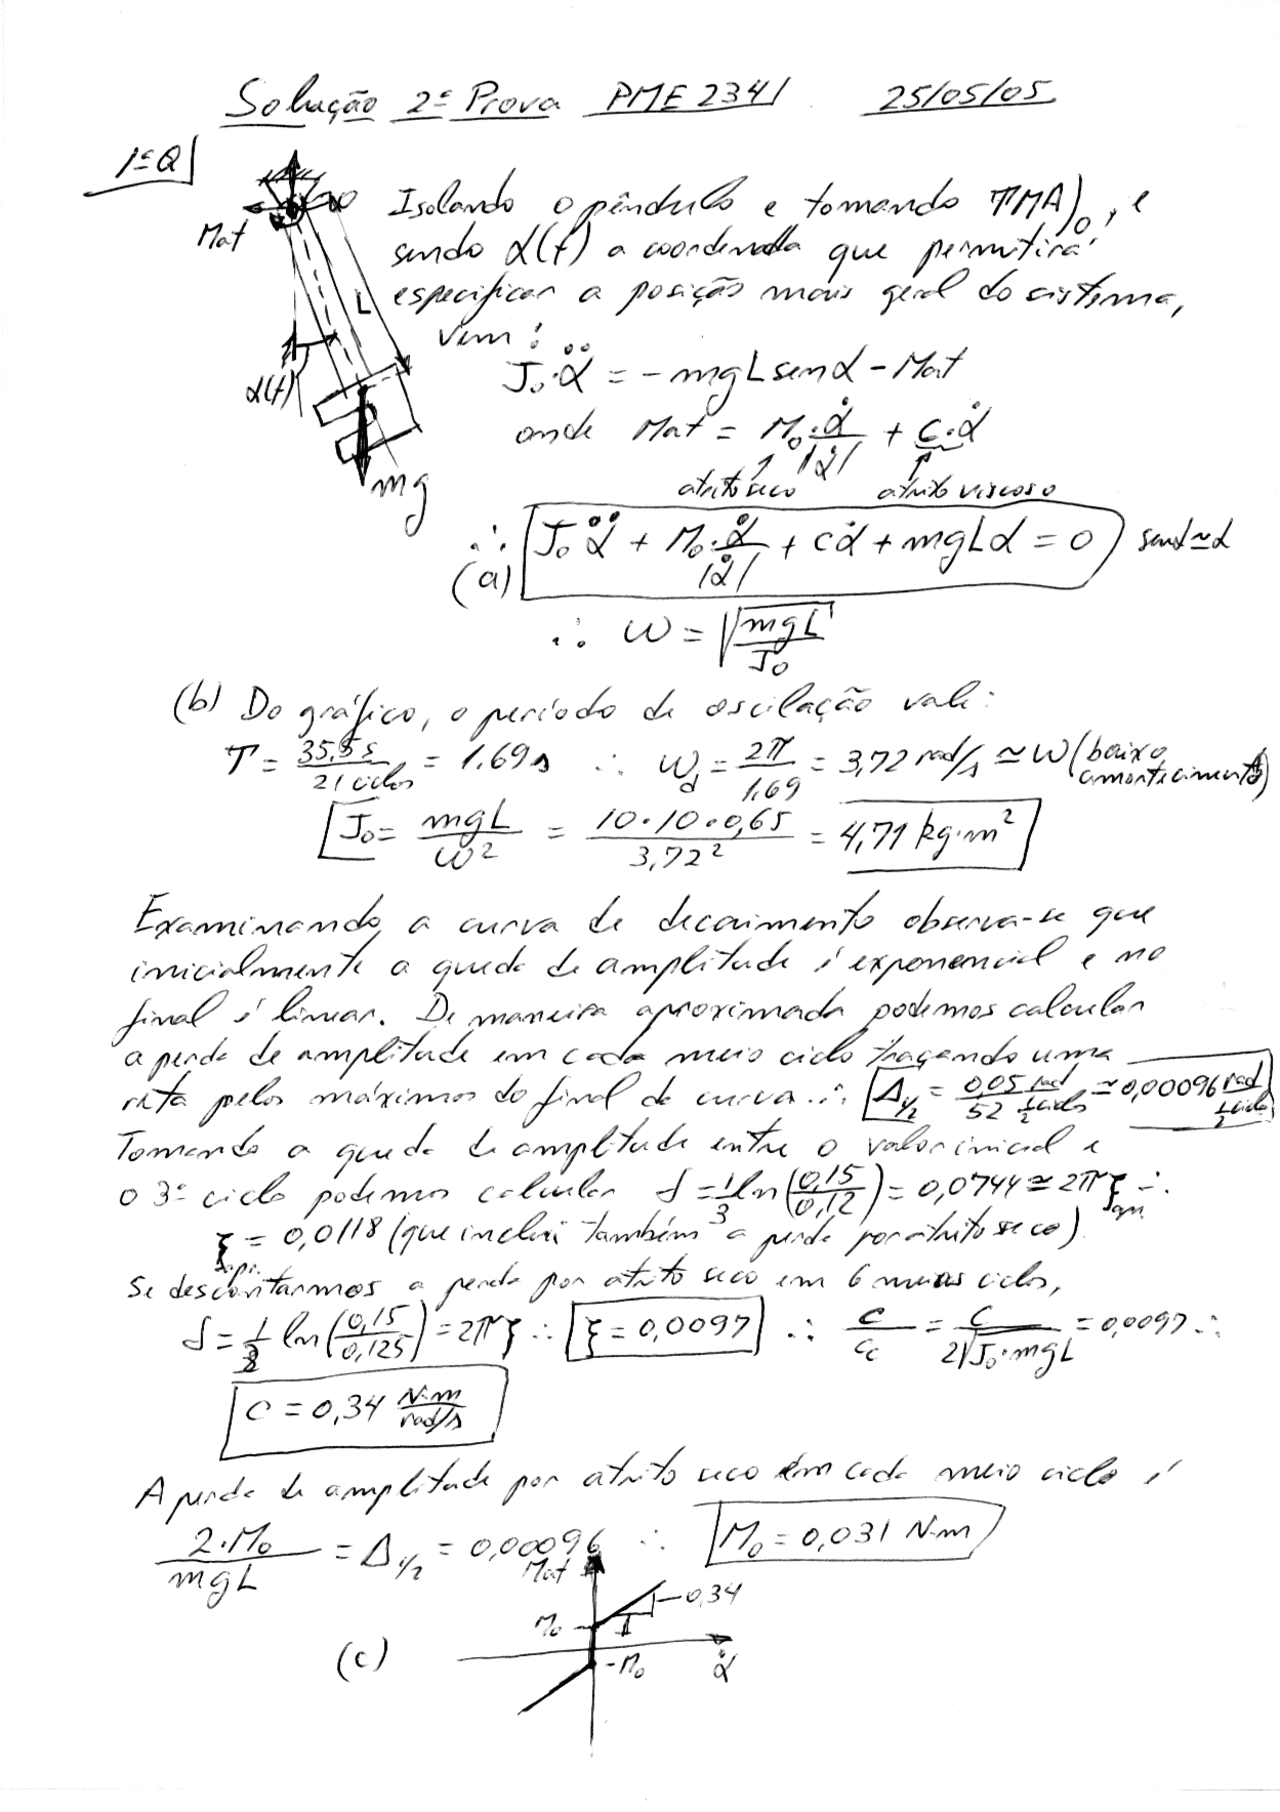 Solução 2ª Prova PME 2341 25/05/05
1ª Q
Isolando o pêndulo e tomando TMA)₀, e
sendo α(t) a coordenada que permitirá
especificar a posição mais geral do sistema,
vem:
Mat
O
L
α(t)
mg
J₀·α̈ = -mgL senα - Mat
onde Mat = M₀·α̇/|α̇| + c·α̇
atrito seco atrito viscoso
∴ J₀α̈ + M₀·α̇/|α̇| + cα̇ + mgLα = 0 senα ≃ α
(a)
∴ ω = √(mgL/J₀)
(b) Do gráfico, o período de oscilação vale:
T = 35,5 s/21 ciclos = 1.69 s ∴ ω_d = 2π/1,69 = 3,72 rad/s ≃ ω (baixo amortecimento)
J₀ = mgL/ω² = 10·10·0,65/3,72² = 4,71 kg·m²
Examinando a curva de decaimento observa-se que
inicialmente a queda de amplitude é exponencial e no
final é linear. De maneira aproximada podemos calcular
a perda de amplitude em cada meio ciclo traçando uma
reta pelos máximos do final da curva ∴ Δ½ = 0,05 rad/52 ½ciclos ≃ 0,00096 rad/½ciclo
Tomando a queda de amplitude entre o valor inicial e
o 3º ciclo podemos calcular δ = 1/3 ln(0,15/0,12) = 0,0744 ≃ 2πξ_apr. ∴
ξ_apr. = 0,0118 (que inclui também a perda por atrito seco).
Se descontarmos a perda por atrito seco em 6 meios ciclos,
δ = 1/3 ln(0,15/0,125) = 2πξ ∴ ξ = 0,0097 ∴ c/c_c = c/2√(J₀·mgL) = 0,0097 ∴
c = 0,34 N·m/rad/s
A perda de amplitude por atrito seco em cada meio ciclo é
2·M₀/mgL = Δ½ = 0,00096 ∴ M₀ = 0,031 N·m
Mat
0,34
M₀
(c)
-M₀
α̇